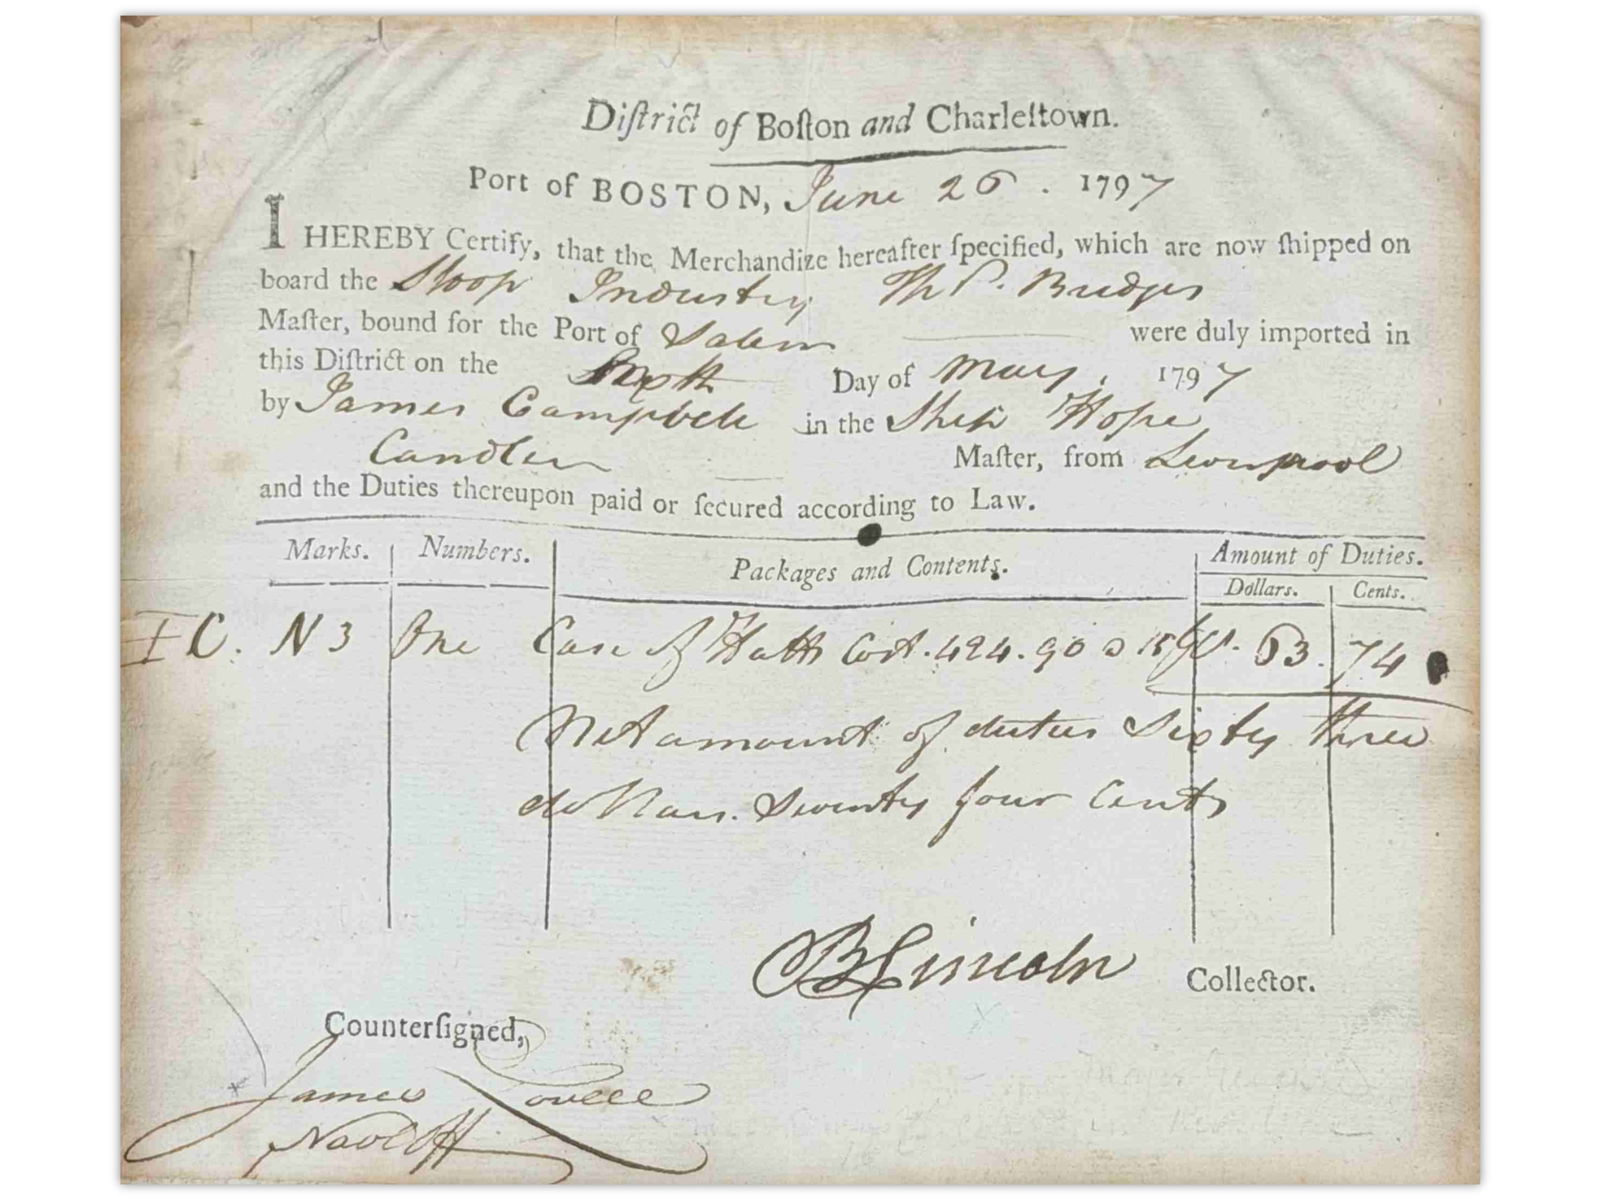 Diſtrict of Boſton and Charleſtown.
Port of BOSTON, June 26. 1797
I HEREBY Certify, that the Merchandize hereafter ſpecified, which are now ſhipped on
board the Sloop Industry Th P. Bridges
Maſter, bound for the Port of Salem were duly imported in
this Diſtrict on the Sixth Day of May, 1797
by James Campbell in the Ship Hope
Candler Maſter, from Liverpool
and the Duties thereupon paid or ſecured according to Law.
Marks. Numbers. Packages and Contents. Amount of Duties.
Dollars. Cents.
I C. N 3 One Case of Hatts Cost. 424.90 a 15 63. 74
Net amount of duties Sixty three
dollars. Seventy four Cents
B Lincoln Collector.
Counterſigned,
James Lovell
Nav¹ Off